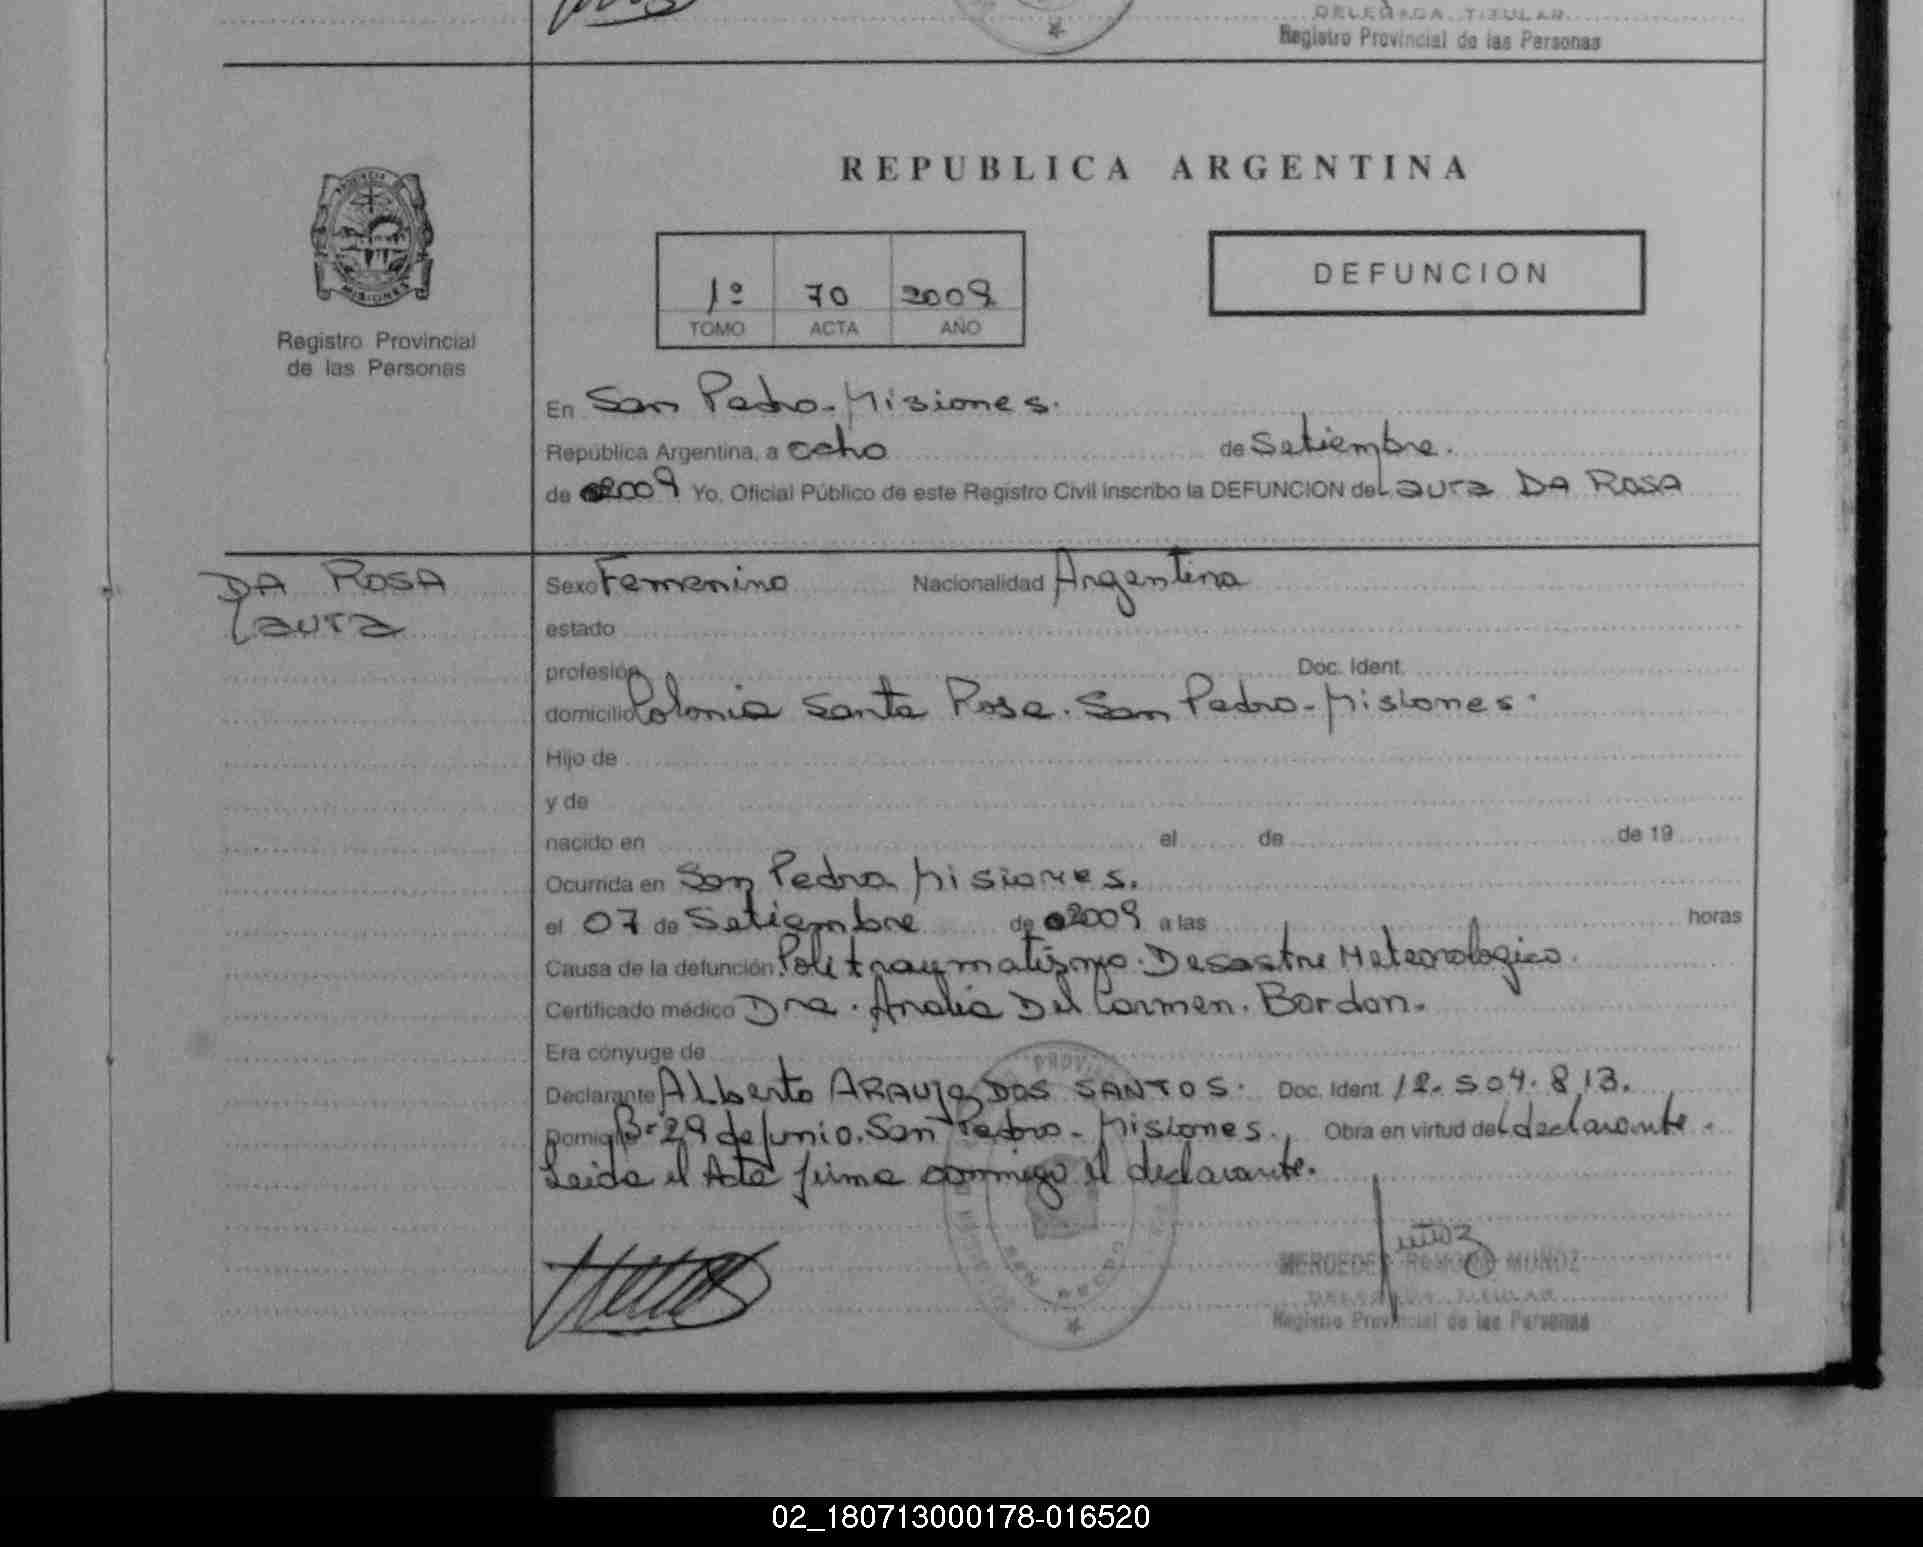 DELEGADA TITULAR
Registro Provincial de las Personas
REPUBLICA ARGENTINA
PROVINCIA DE
MISIONES
Registro Provincial
de las Personas
1º 70 2009
TOMO ACTA AÑO
DEFUNCION
En San Pedro - Misiones.
República Argentina, a ocho de Setiembre.
de 2009 Yo, Oficial Público de este Registro Civil inscribo la DEFUNCION de Laura DA ROSA
DA ROSA
Laura
Sexo Femenino Nacionalidad Argentina
estado
profesión Doc. Ident.
domicilio Colonia Santa Rosa. San Pedro - Misiones.
Hijo de
y de
nacido en el de de 19
Ocurrida en San Pedro Misiones.
el 07 de Setiembre de 2009 a las horas
Causa de la defunción Politraumatismo. Desastre Meteorologico.
Certificado médico Dra. Analia Del Carmen. Bordon.
Era cónyuge de
Declarante Alberto ARAUJO DOS SANTOS. Doc. Ident. 12.504.813.
Domicilio Bº 29 de Junio. San Pedro - Misiones., Obra en virtud del declarante.
Leida el Acta firma conmigo el declarante.
SAN PEDRO
MERCEDES RAMONA MUÑOZ
DELEGADA TITULAR
Registro Provincial de las Personas
02_180713000178-016520